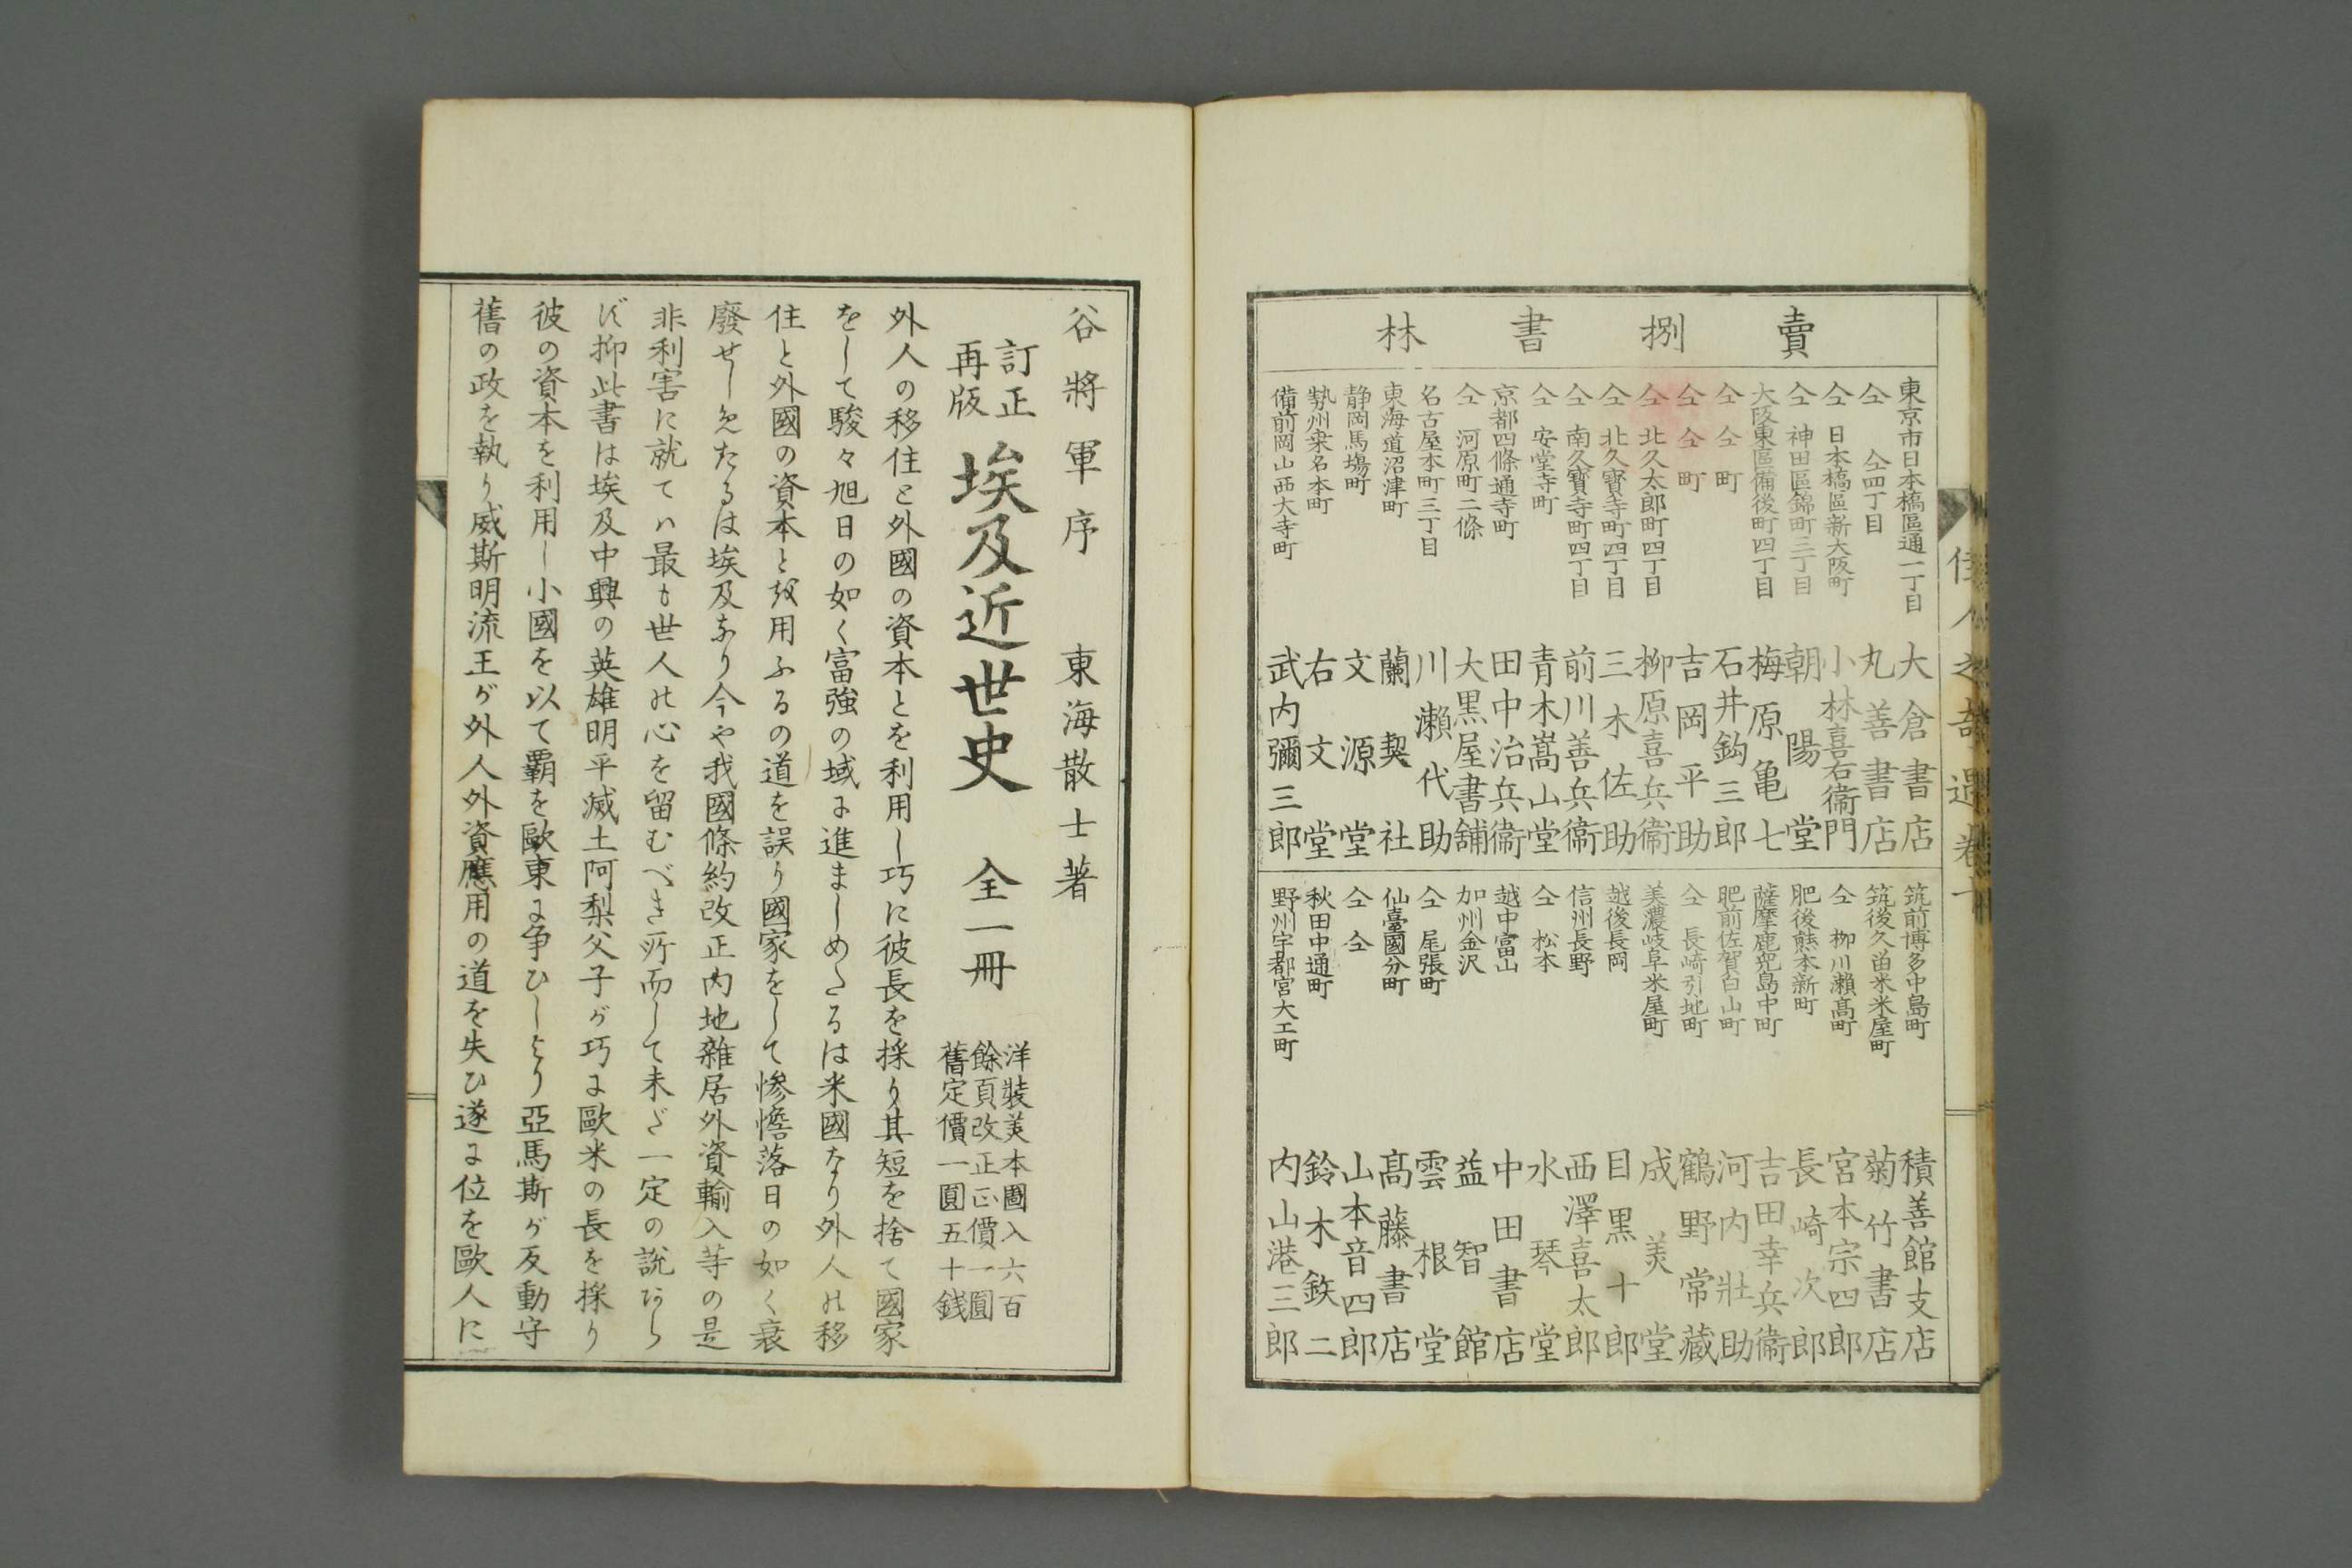 佳人之奇遇卷十
賣捌書林
東京市日本橋區通一丁目 大倉書店
仝 仝四丁目 丸善書店
仝 日本橋區新大阪町 小林喜右衞門
仝 神田區錦町三丁目 朝陽堂
大阪東區備後町四丁目 梅原亀七
仝 仝町 石井鈎三郎
仝 仝町 吉岡平助
仝 北久太郎町四丁目 柳原喜兵衞
仝 北久寳寺町四丁目 三木佐助
仝 南久寳寺町四丁目 前川善兵衞
仝 安堂寺町 青木嵩山堂
京都四條通寺町 田中治兵衞
仝 河原町二條 大黒屋書舗
名古屋本町三丁目 川瀬代助
東海道沼津町 蘭契社
静岡馬塲町 文源堂
勢州桒名本町 右文堂
備前岡山西大寺町 武内彌三郎
筑前博多中島町 積善館支店
筑後久留米米屋町 菊竹書店
仝 柳川瀬髙町 宮本宗四郎
肥後熊本新町 長崎次郎
薩摩鹿兒島中町 吉田幸兵衞
肥前佐賀白山町 河内壯助
仝 長崎引地町 鶴野常藏
美濃岐阜米屋町 成美堂
越後長岡 目黒十郎
信州長野 西澤喜太郎
仝 松本 水琴堂
越中富山 中田書店
加州金沢 益智館
仝 尾張町 雲根堂
仙臺國分町 髙藤書店
仝 仝 山本音四郎
秋田中通町 鈴木鉄二
野州宇都宮大工町 内山港三郎
谷將軍序 東海散士著
訂正再版 埃及近世史 全一冊
洋裝美本圖入六百
餘頁改正正價一圓
舊定價一圓五十銭
外人の移住と外國の資本とを利用し巧に彼長を採り其短を捨て國家
をして駿々旭日の如く富強の域に進ましめたるは米國なり外人の移
住と外國の資本とを用ふるの道を誤り國家をして惨憺落日の如く衰
廢せしめたるは埃及なり今や我國條約改正内地雜居外資輸入等の是
非利害に就てハ最も世人の心を留むべき所而して未だ一定の説あら
ず抑此書は埃及中興の英雄明平滅土阿梨父子が巧に歐米の長を採り
彼の資本を利用し小國を以て覇を歐東に争ひしより亞馬斯が反動守
舊の政を執り威斯明流王が外人外資應用の道を失ひ遂に位を歐人に